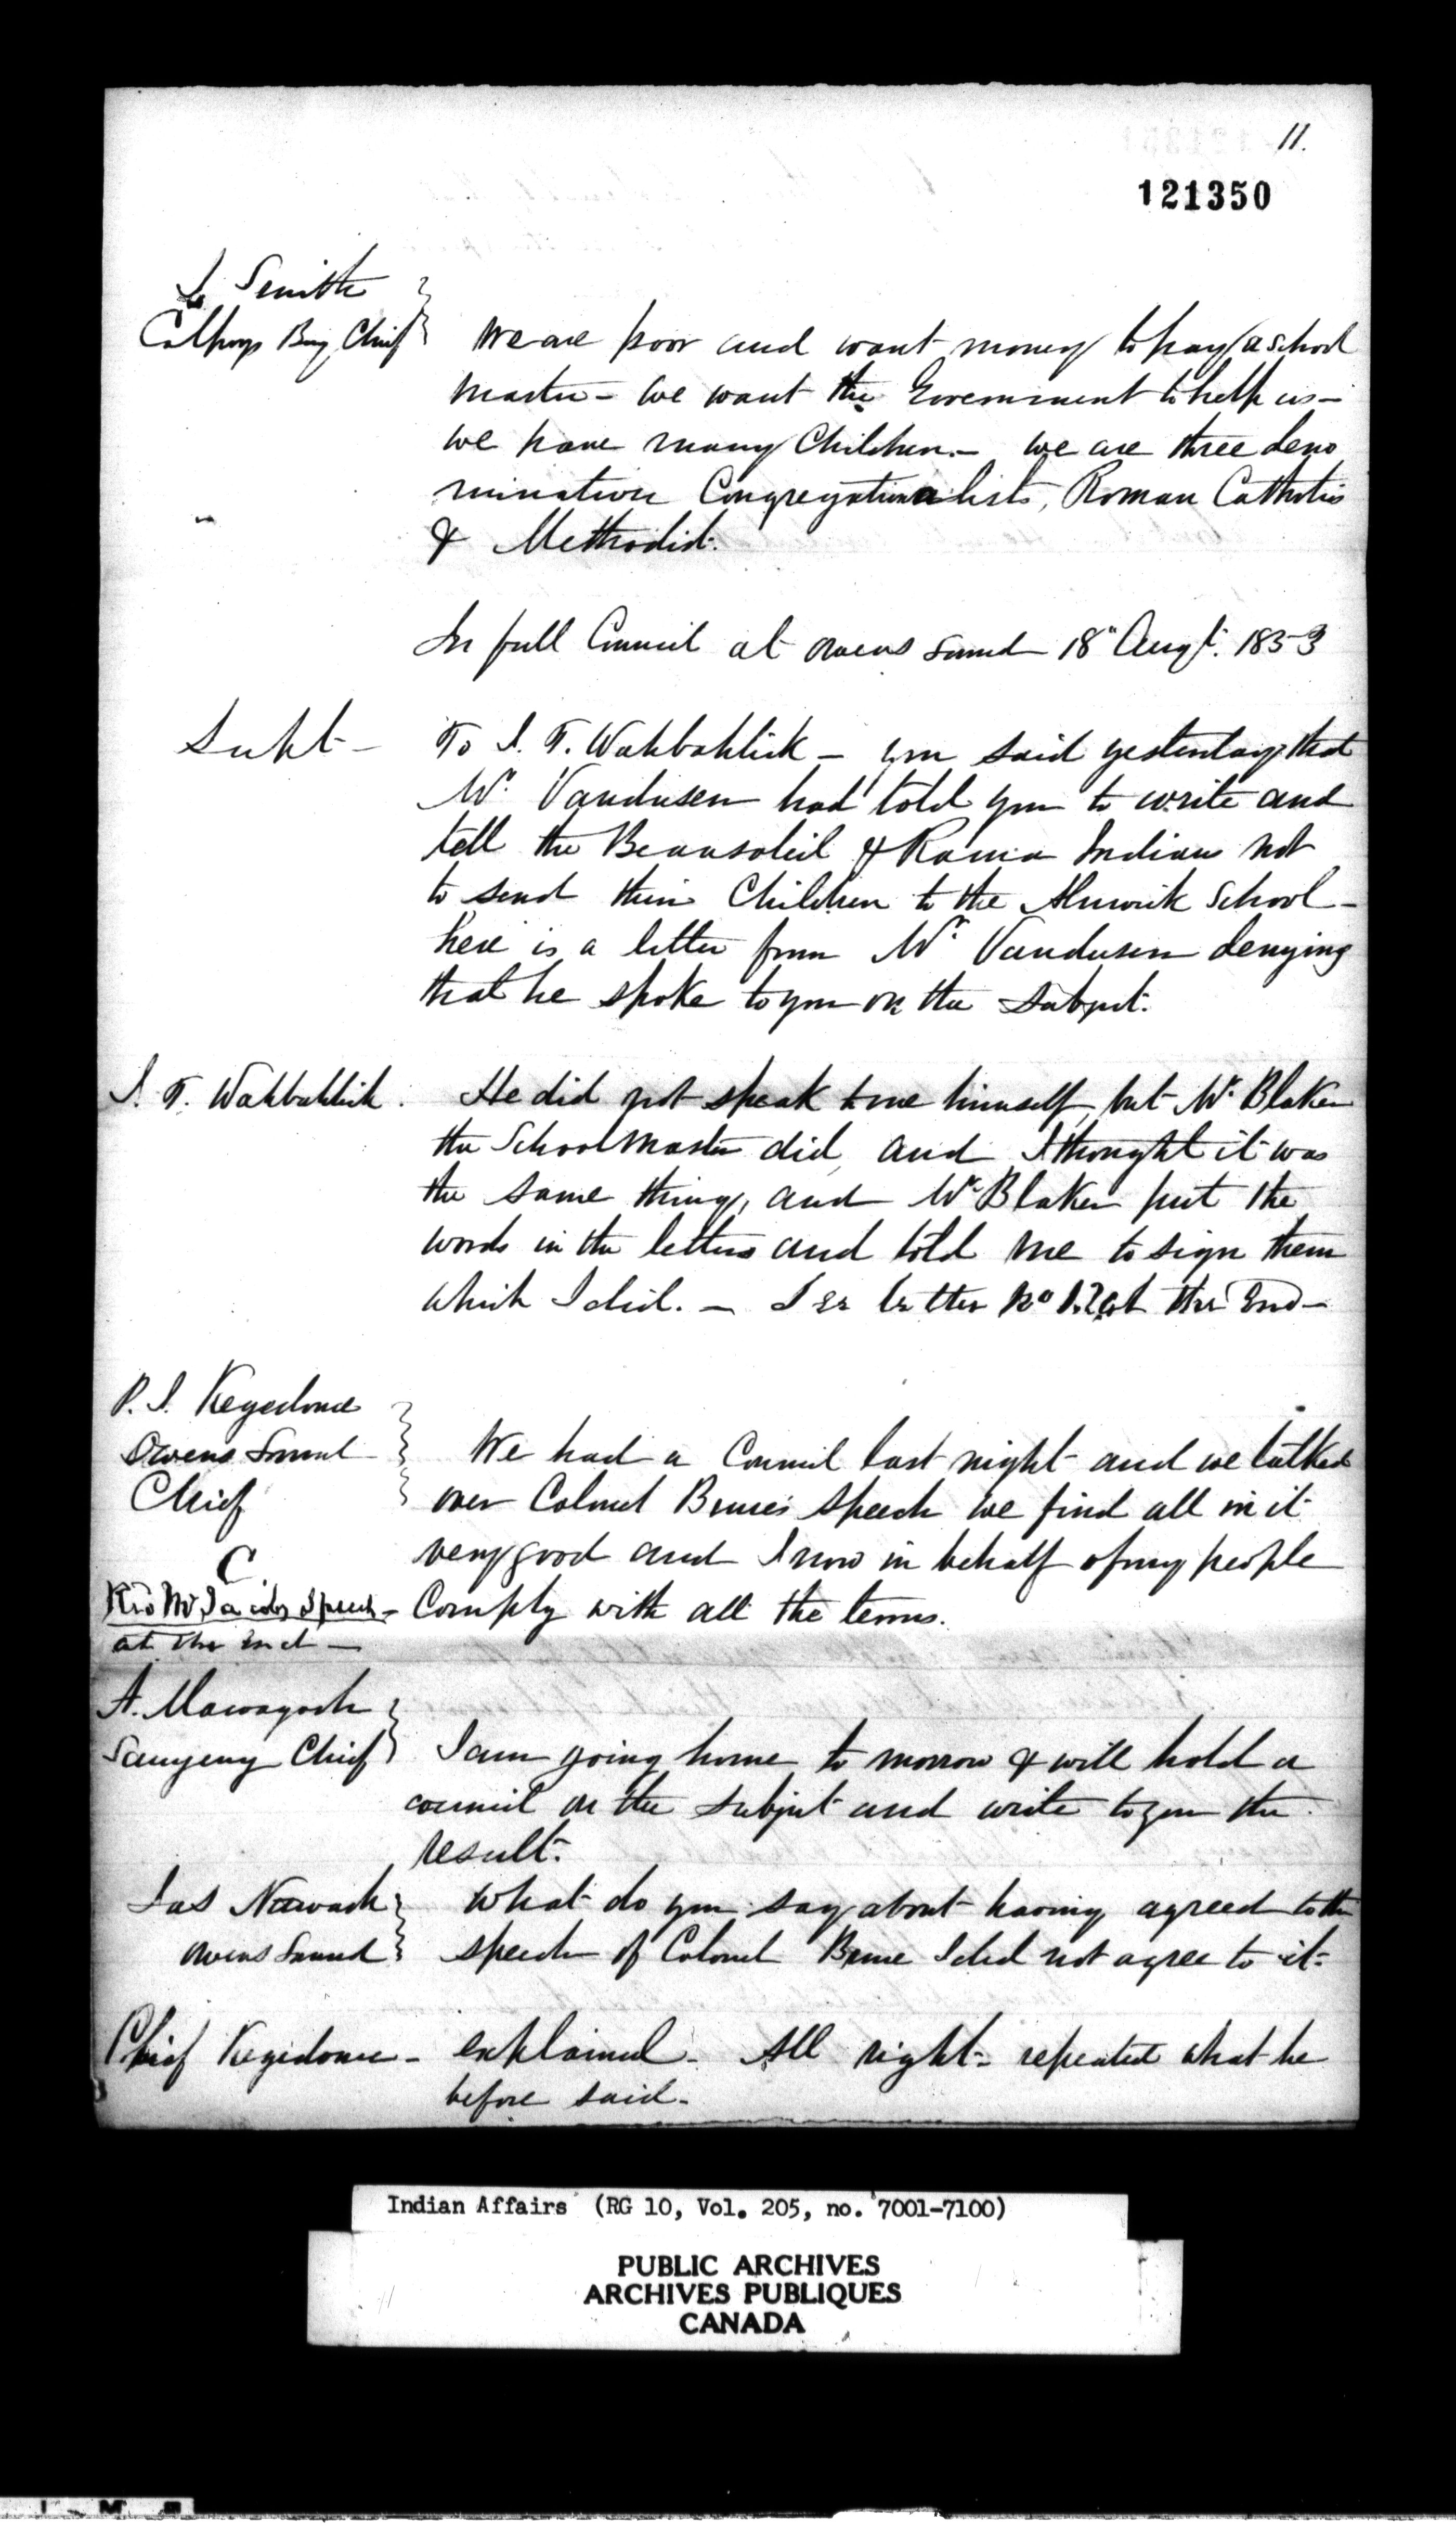 11.
121350
Smith
Colpoys Bay Chief
We are poor and want money to pay a school
master - we want the Government to help us -
we have many Children. - we are three deno
mination Congregationalists, Roman Catholis
& Methodist.
In full Council at Owens Sound 18" Augt. 1853
Supt -
To J. T. Wahbahtick - you said yesterday that
Mr. Vandusen had told you to write and
tell the Beausoleil & Rama Indians not
to send their Children to the Alnwick School -
here is a letter from Mr. Vandusen denying
that he spoke to you on the subject.
J. T. Wahbahtick.
He did not speak to me himself, but Mr. Blaker
the Schoolmaster did, and I thought it was
the same thing, and Mr Blaker put the
words in the letters and told me to sign them
which I did. - See letter No at the End -
P. J. Kegedonce
Owens Sound
Chief
We had a Council last night and we talked
over Colonel Bruce's speech we find all in it
very good and I now in behalf of my people
Comply with all the terms.
C
speech -
at the End -
A. Mawagosh
Saugeeng Chief
I am going home to morrow & will hold a
council on the subject and write to you the
result.
Jas Nawash
Owens Sound
What do you say about having agreed to the
speech of Colonel Bruce I did not agree to it -
Chief Kegedonce -
explained - All right - repeated what he
before said -
Indian Affairs (RG 10, Vol. 205, no. 7001-7100)
PUBLIC ARCHIVES
ARCHIVES PUBLIQUES
CANADA